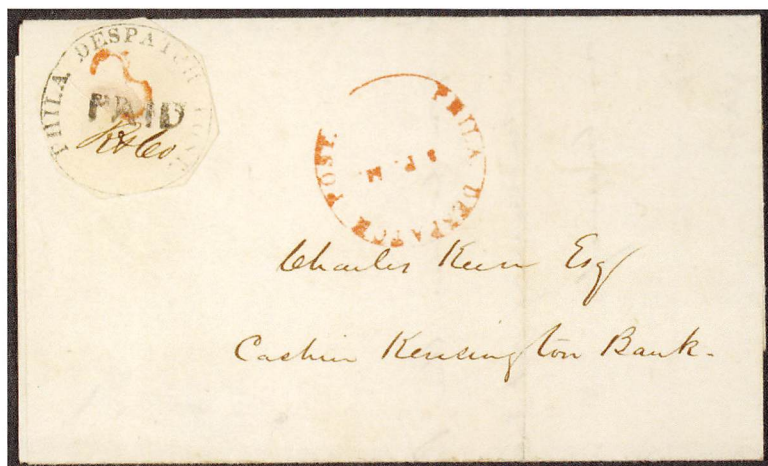 PHILA DESPATCH POST.
3
PAID
R & Co
PHILA DESPATCH POST.
P. M.
Charles Keen Esq
Cashier Kensington Bank.